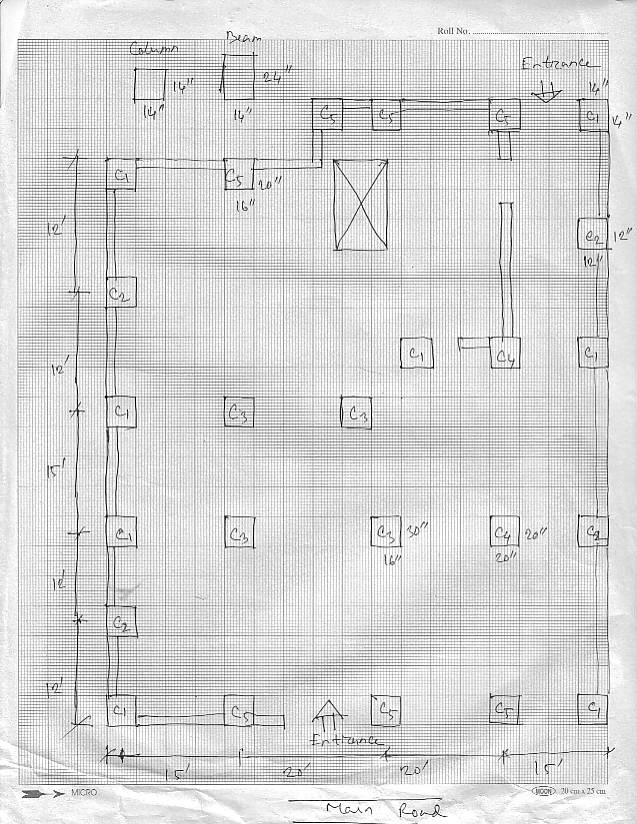 Roll No.
Column
Beam
14"
14"
24"
14"
Entrance
14"
14"
C5
C5
C5
C1
C1
C5
20"
16"
C2
12"
12"
12'
C2
C1
C4
C1
12'
C1
C3
C3
15'
C1
C3
C3
30"
16"
C4
20"
20"
C2
12'
C2
12'
C1
C5
C5
C5
C1
Entrance
15'
20'
20'
15'
MICRO
MOON
20 cm x 25 cm
Main Road